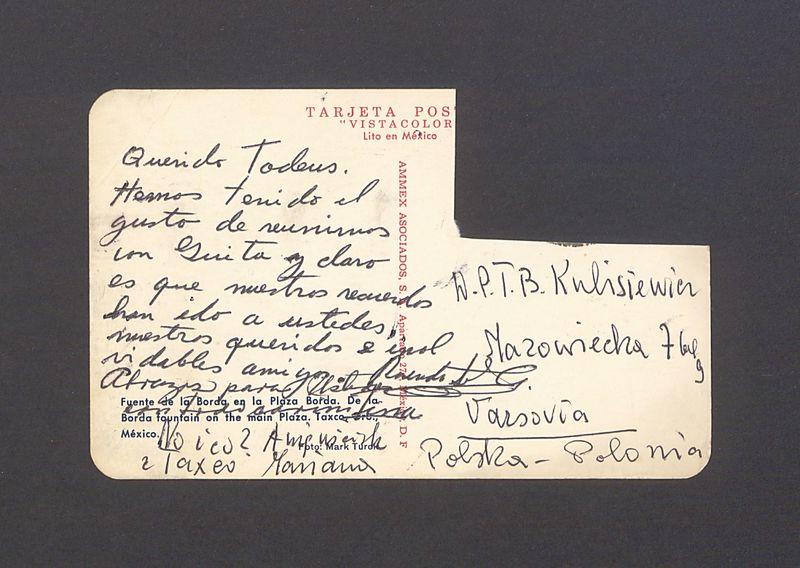 TARJETA POS
"VISTACOLOR
Lito en México
AMMEX ASOCIADOS, S. Apartado D. F
Querido Tadeus.
Hemos tenido el
gusto de reunirnos
con Guita y claro
es que nuestros recuerdos
han ido a ustedes,
nuestros queridos e inol
vidables amigos.
Abrazos para
Fuente de la Borda, en la Plaza Borda. De la
Borda fountain on the main Plaza. Taxco,
México.
Foto: Mark Turok
z Taxco Mariana
W.P.T.B. Kulisiewicz
Mazowiecka 7
Varsovia
Polska - Polonia